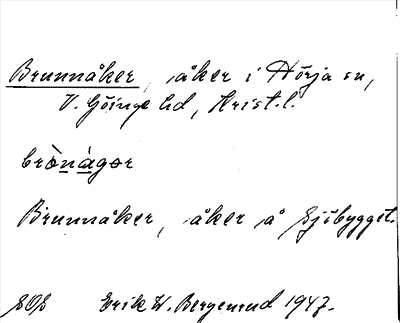 Brunnåker, åker i Hörja sn,
V. Göinge hd, Krist. l.
brònàgər
Brunnåker, åker å Sjöbygget.
SOS Erik W. Bergenrud 1947.